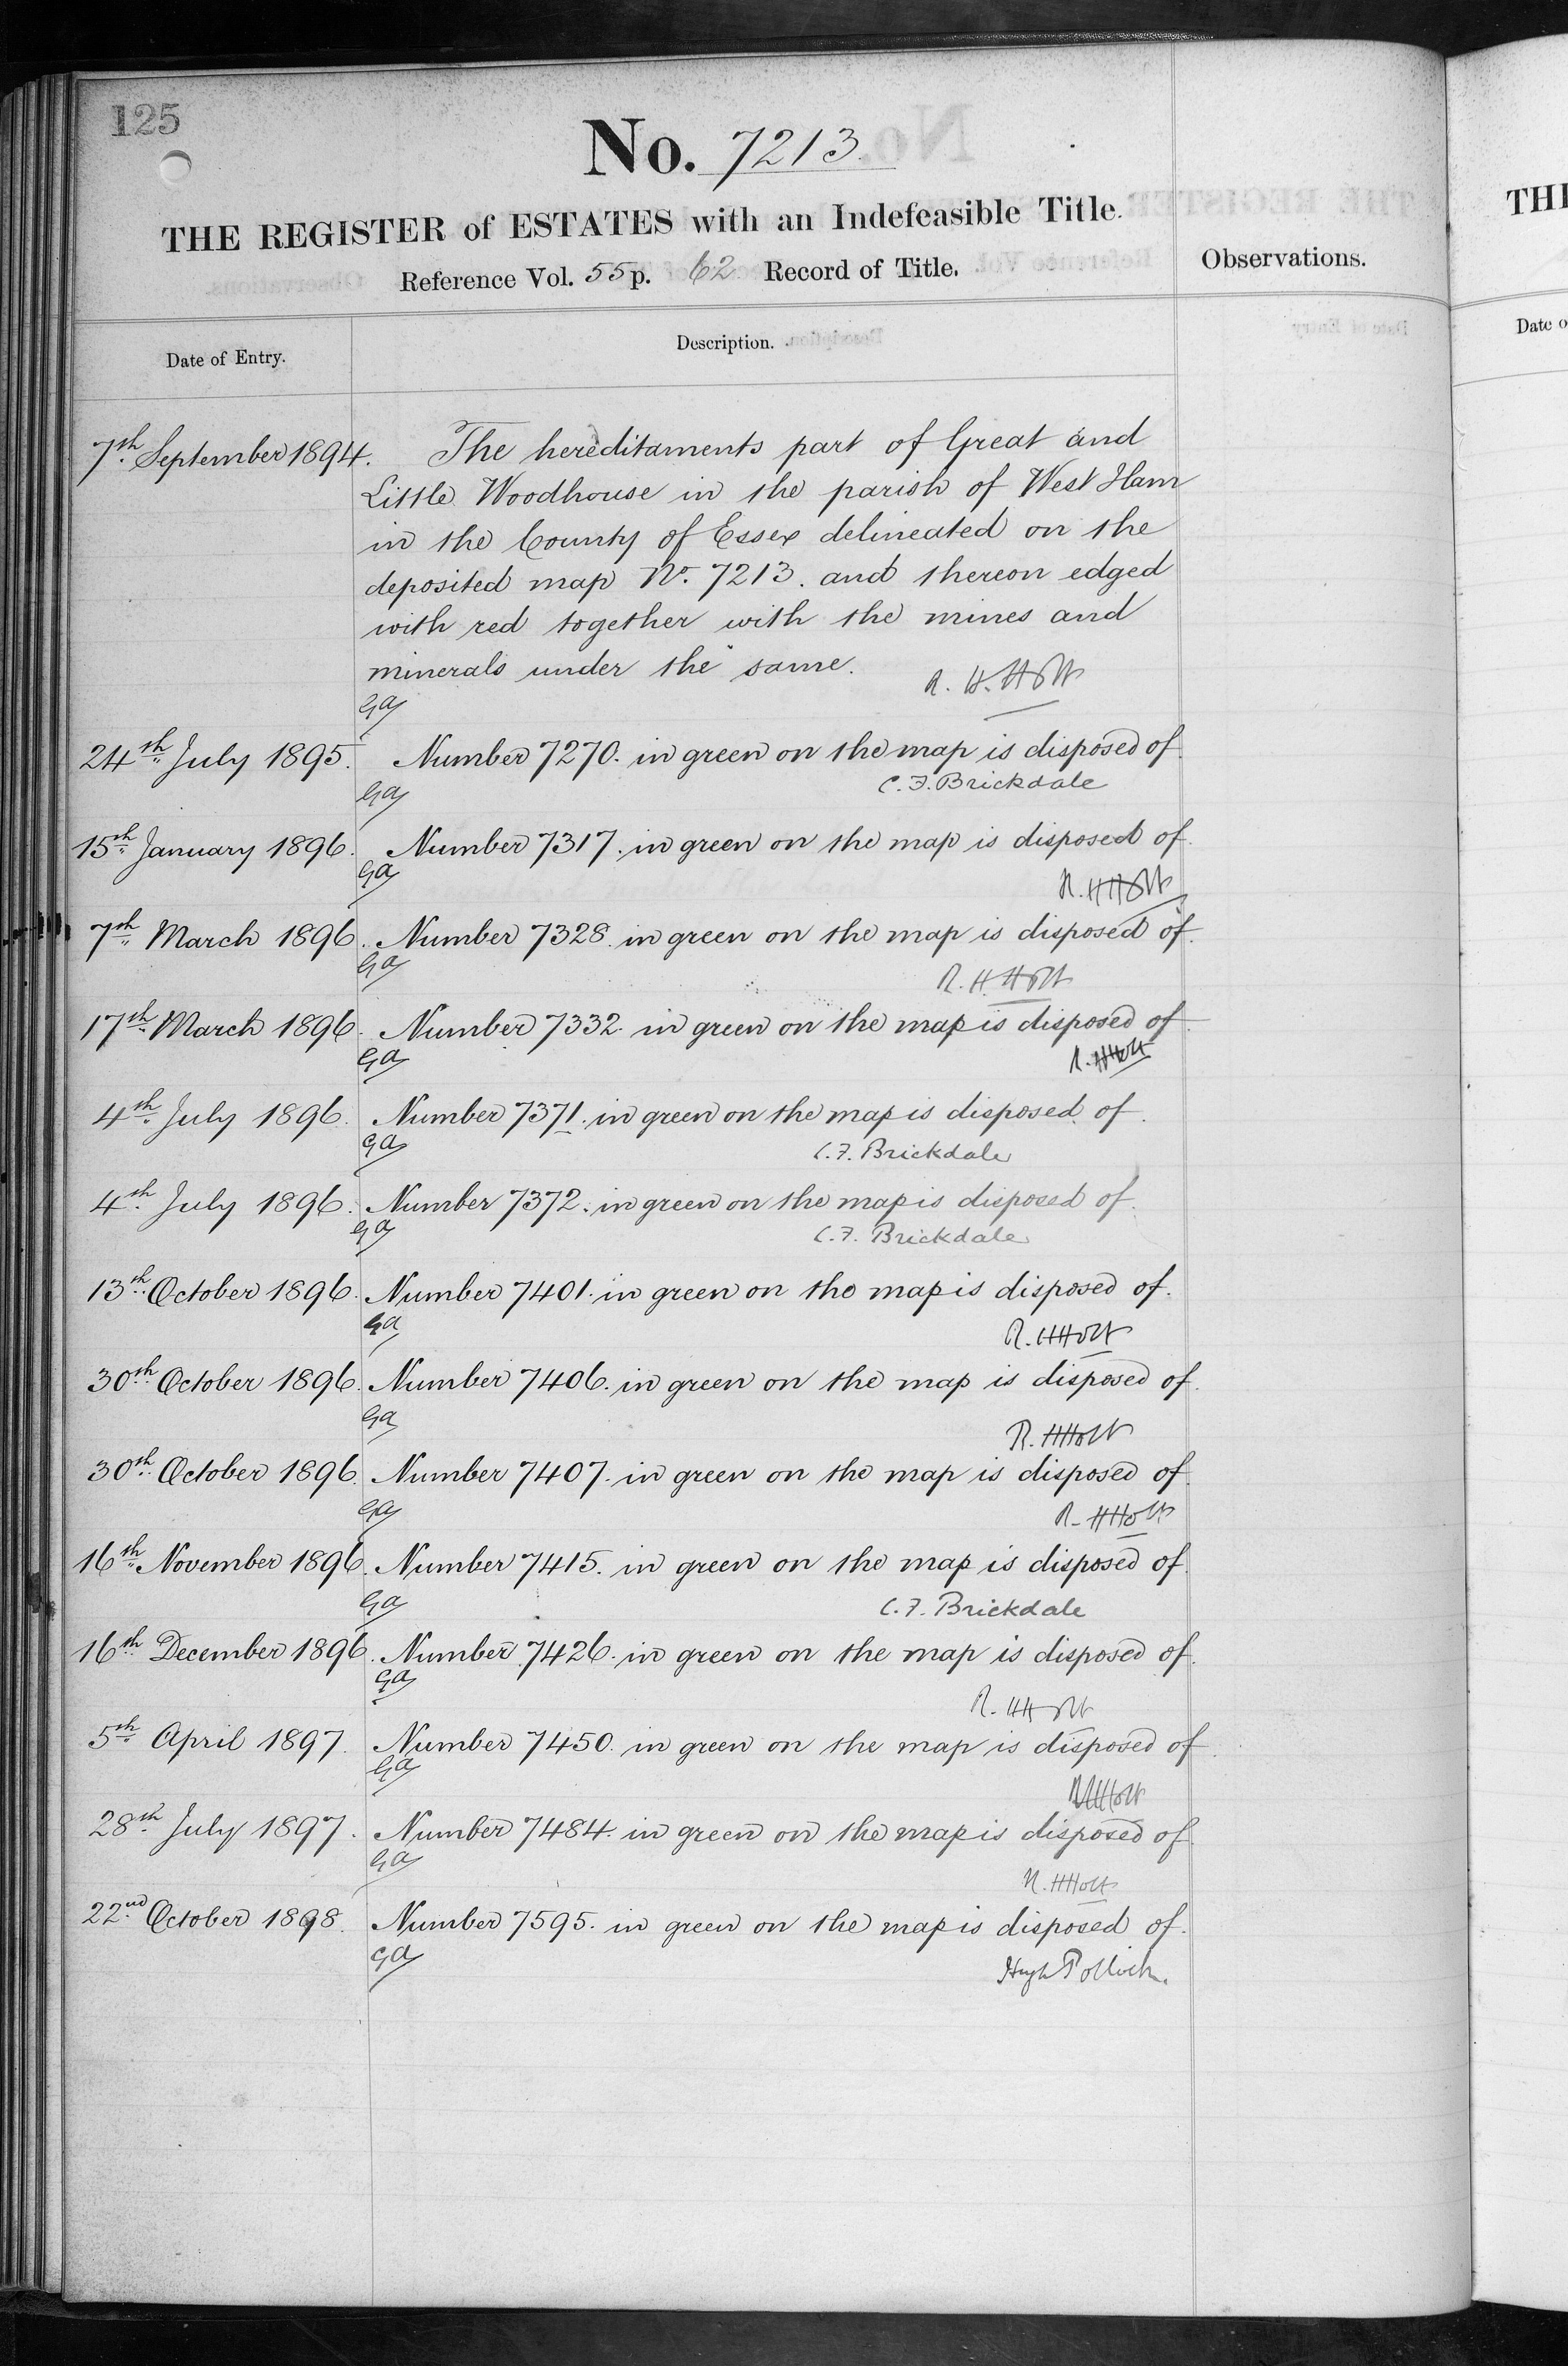 125
No. 7213.
THE REGISTER of ESTATES with an Indefeasible Title.
Reference Vol. 55 p. 62 Record of Title.
Observations.
Date of Entry.
Description.
7th September 1894. The hereditaments part of Great and
Little Woodhouse in the parish of West Ham
in the County of Essex delineated on the
deposited map No. 7213. and thereon edged
with red together with the mines and
minerals under the same. R. H. Holt
GA
24th July 1895. Number 7270. in green on the map is disposed of.
GA C. F. Brickdale
15th January 1896. Number 7317. in green on the map is disposed of.
GA R. H Holt
7th March 1896. Number 7328. in green on the map is disposed of.
GA R. H. Holt
17th March 1896. Number 7332. in green on the map is disposed of.
GA R. H Holt
4th July 1896. Number 7371. in green on the map is disposed of.
GA C. F. Brickdale
4th July 1896. Number 7372. in green on the map is disposed of.
GA C. F. Brickdale
13th October 1896. Number 7401. in green on the map is disposed of.
GA R. H Holt
30th October 1896. Number 7406. in green on the map is disposed of.
GA R. H Holt
30th October 1896. Number 7407. in green on the map is disposed of.
GA R. H Holt
16th November 1896. Number 7415. in green on the map is disposed of.
GA C. F. Brickdale
16th December 1896. Number 7426. in green on the map is disposed of.
GA R. H Holt
5th April 1897. Number 7450. in green on the map is disposed of.
GA R H Holt
28th July 1897. Number 7484. in green on the map is disposed of
GA R. H Holt
22nd October 1898. Number 7595. in green on the map is disposed of.
GA Hugh Pollock.
THE
Date o